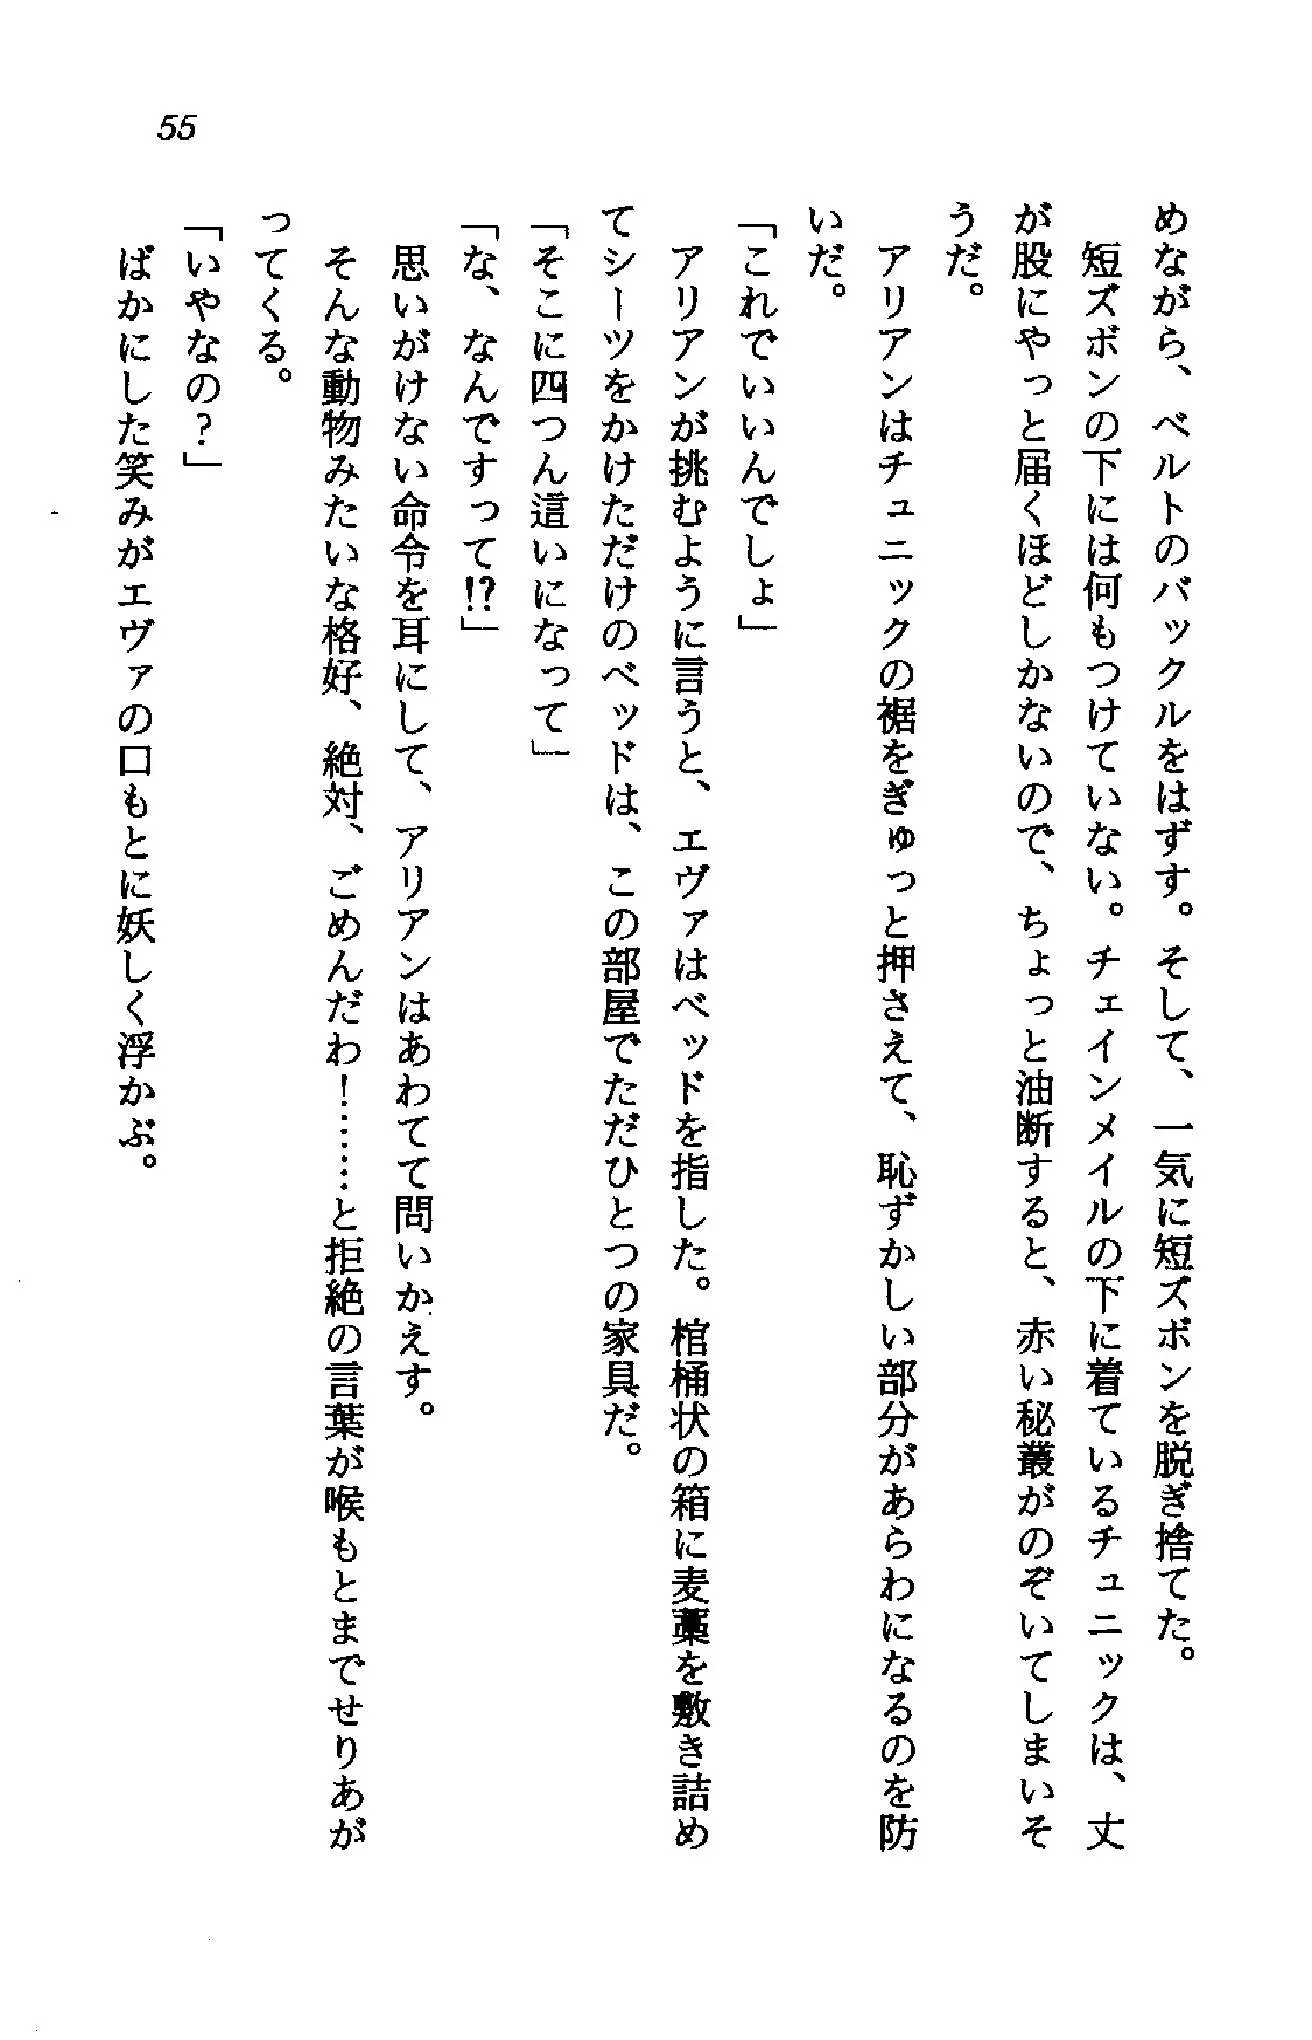 55
めながら、ベルトのバックルをはずす。そして、一気に短ズボンを脱ぎ捨てた。
短ズボンの下には何もつけていない。チェインメイルの下に着ているチュニックは、丈
が股にやっと届くほどしかないので、ちょっと油断すると、赤い秘叢がのぞいてしまいそ
うだ。
アリアンはチュニックの裾をぎゅっと押さえて、恥ずかしい部分があらわになるのを防
いだ。
「これでいいんでしょ」
アリアンが挑むように言うと、エヴァはベッドを指した。棺桶状の箱に麦藁を敷き詰め
てシーツをかけただけのベッドは、この部屋でただひとつの家具だ。
「そこに四つん這いになって」
「な、なんですって!?」
思いがけない命令を耳にして、アリアンはあわてて問いかえす。
そんな動物みたいな格好、絶対、ごめんだわ！………と拒絶の言葉が喉もとまでせりあが
ってくる。
「いやなの？」
ばかにした笑みがエヴァの口もとに妖しく浮かぶ。